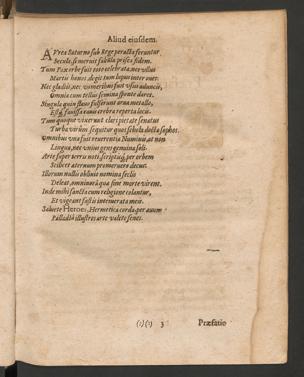 Aliud eiusdem.
AVrea Saturno sub Rege peracta feruntur
Secula, si meruit fabula prisca fidem.
Tum Pax orbe fuit toto celebrata, nec ullus
Martis honos: degit tum lupus inter oues.
Nec gladiis, nec vomeribus fuit usus aduncis,
Omnia cum tellus semina sponte daret.
Singula quin flauo fulserunt arua metallo,
Estque fuisse
Tum quoque vixerunt clari pietate senatus
Turba virûm sequitur quos schola docta sophos.
Omnibus una fuit reuerentia Numinis, at non
Lingua, nec unius gens gemina soli.
Arte super terris noti, scriptisque per orbem
Scilicet aternum promeruere decus.
Illorum nullis obliuio nomina seclis
Deleat, omniuora qua sine morte virent.
Inde mihi sancta cum religione colantur,
Et vigeant fastis intemerata meis.
Saluete Heroes, Hermetica corda per auum
Palladiâ illustres arte valete senes.
(?)(?) 3 Præfatio